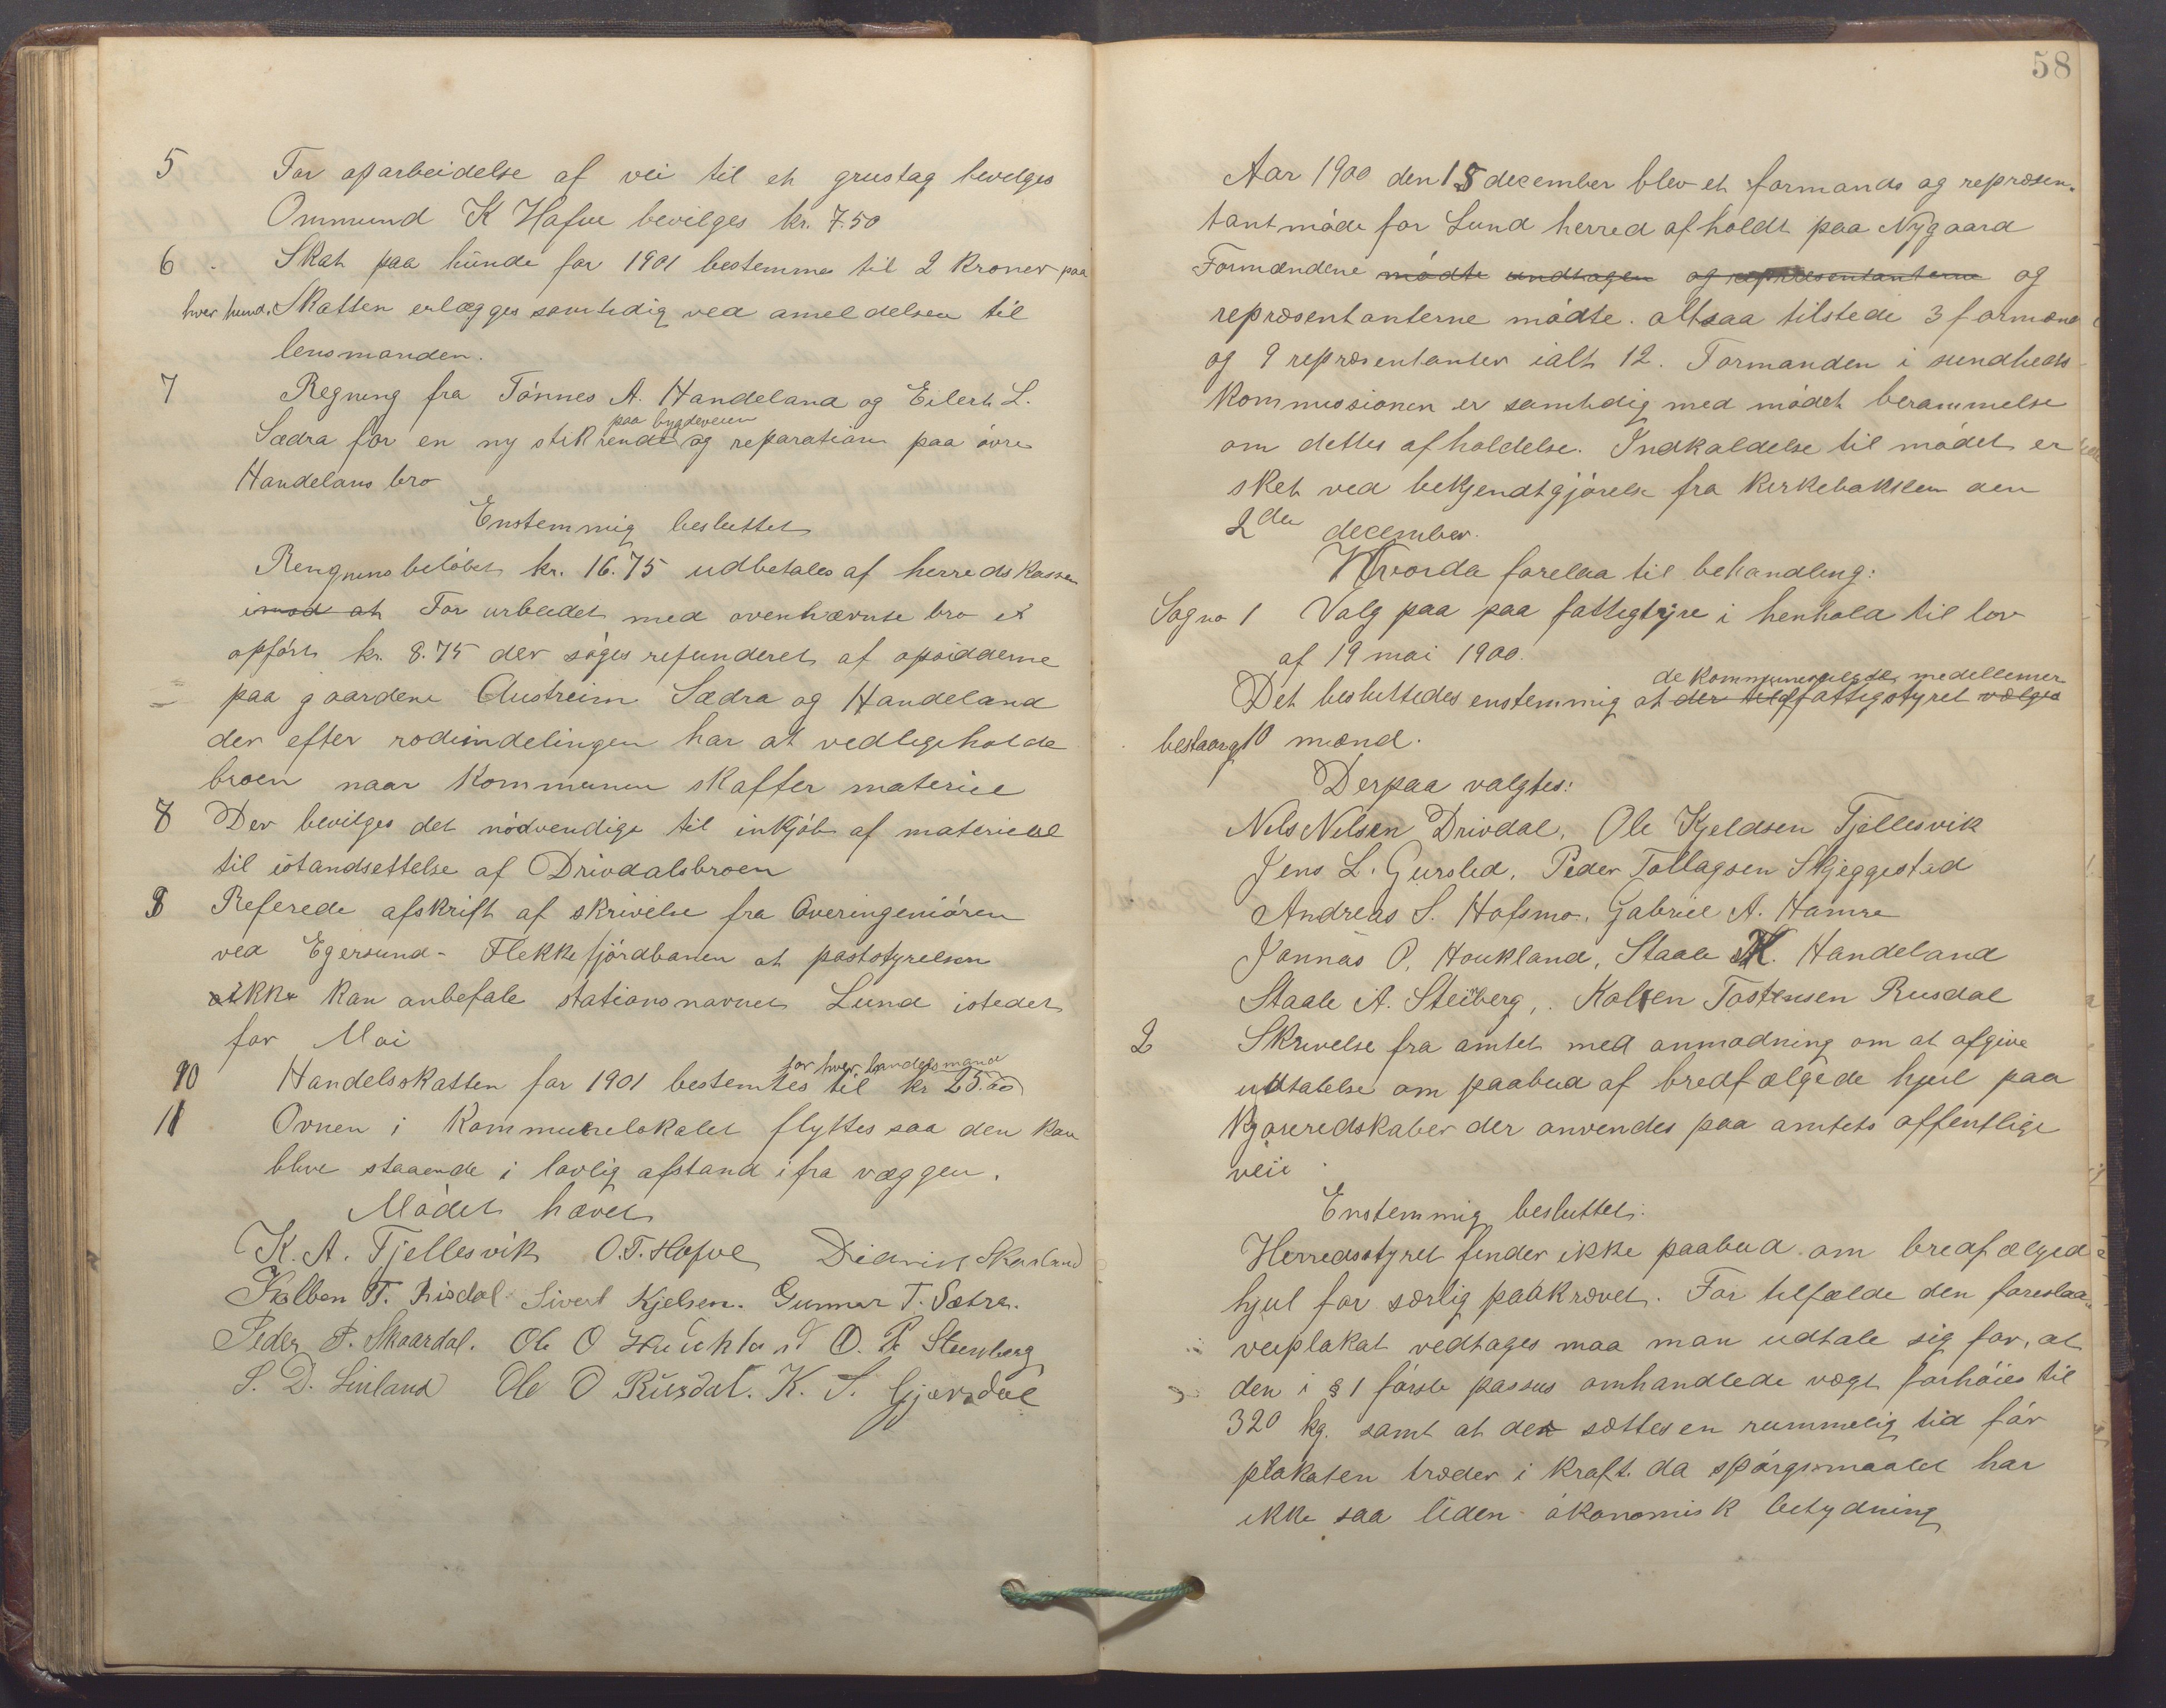 5 For oparbeidelse af vei til et grustag bevilges
Ommund K Hafve bevilges kr. 7.50
6 Skat paa hunde for 1901 bestemmes til 2 kroner paa
hver hund. Skatten erlægges samtidig ved ameldelsen til
lensmanden.
7 Regning fra Tönnes A. Handeland og Eilert L.
paa bygdeveien
Sædra for en ny stikrende og reparation paa övre
Handelans bro
Enstemmig besluttet
Rengnens belöbet kr. 16.75 udbetales af herredskassen
imod at For arbeidet med ovenhævnte bro er
opfört kr. 8.75 der söges refunderet af opsidderne
paa gaardene Austreim Sædra og Handeland
der efter rodeindelingen har at vedligeholde
broen naar kommunen skaffer materiel
8 Der bevilges det nödvendige til inkjöb af materiell
til istandsettelse af Drivdalsbroen
9 Referede afskrift af skrivelse fra Overingeniören
ved Egersund-Flekkefjordbanen at poststyrelsen
ikke kan anbefale stationsnavnet Lund istedet
for Moi
for hver handelsmand
10 Handelsskatten for 1901 bestemtes til kr 25.00
11 Ovnen i kommunelokalet flyttes saa den kan
blive staaende i lovlig afstand ifra væggen.
Mödet hævet
K. A. Fjellesvik O. T. Hofve Didrik Skarland
Kolben T. Risdal Sivert Kjelsen. Gunnar T. Sætra.
Peder P. Skaardal. Ole O Haukland O. P. Steinberg
S. D. Linland Ole O Rusdal. K. S. Gjersdal
58
Aar 1900 den 15 december blev et formands og repræsen-
tantmöde for Lund herred afholdt paa Nygaard
Formændene mödte undtagen og repræsentanterne og
repræsentanterne mödte. altsaa tilstede 3 formænd
og 9 repræsentanter ialt 12. Formanden i sundheds-
kommissionen er samtidig med mödet berammelse
om dettes afholdelse. Indkaldelse til mödet er
sket ved bekjendtgjörelse fra kirkebakken den
2den december.
Hvorda forelaa til behandling:
Sag no 1 Valg paa paa fattigtyre i henhold til lov
af 19 mai 1900.
de kommunevalgte medellemer
Det besluttedes enstemmig at der till fattigstyret vælges
bestaar af 10 mænd.
Derpaa valgtes:
Nels Nelsen Drivdal, Ole Kjeldsen Fjellesvik
Jens L. Gursled, Peder Tollagsen Skjeggestad
Andreas S. Hofsmo, Gabriel A. Hamre
Jonnas O. Houkland, Staale K. Handeland
Staale A. Steinberg, Kolben Tostensen Rusdal
2 Skrivelse fra amtet med anmodning om at afgive
udtalelse om paabud af bredfælgede hjul paa
kjøreredskaber der anvendes paa amtets offentlige
veie
Enstemmig besluttet:
Herredsstyret finder ikke paabud om bredfælgede
hjul for særlig paakrævet. For tilfælde den foreslaa
veiplakat vedtages maa man udtale sig for, at
den i § 1 förste passus omhandlede vægt forhöies til
320 kg. samt at der sættes en rummelig tid för
plakaten træder i kraft da spörgsmaalet har
ikke saa liden ökonomisk betydning